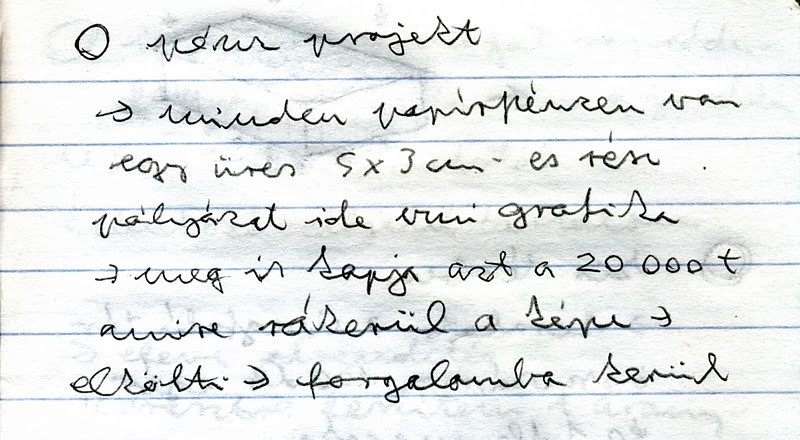 O pénz projekt
→ minden papírpénzen van
egy üres 5x3 cm-es rész
pályázat ide vmi grafika
→ meg is kapja azt a 20 000 t
amire rákerül a képe →
elkölti → forgalomba kerül